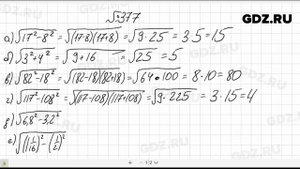 GDZ.RU
№377
а) √(17²-8²) = √((17-8)(17+8)) = √(9·25) = 3·5 = 15
б) √(3²+4²) = √(9+16) = √25 = 5
в) √(82²-18²) = √((82-18)(82+18)) = √(64·100) = 8·10 = 80
г) √(117²-108²) = √((117-108)(117+108)) = √(9·225) = 3·15 = 4
д) √(6,8²-3,2²)
е) √((1 1/16)²-(1/2)²)
1/2